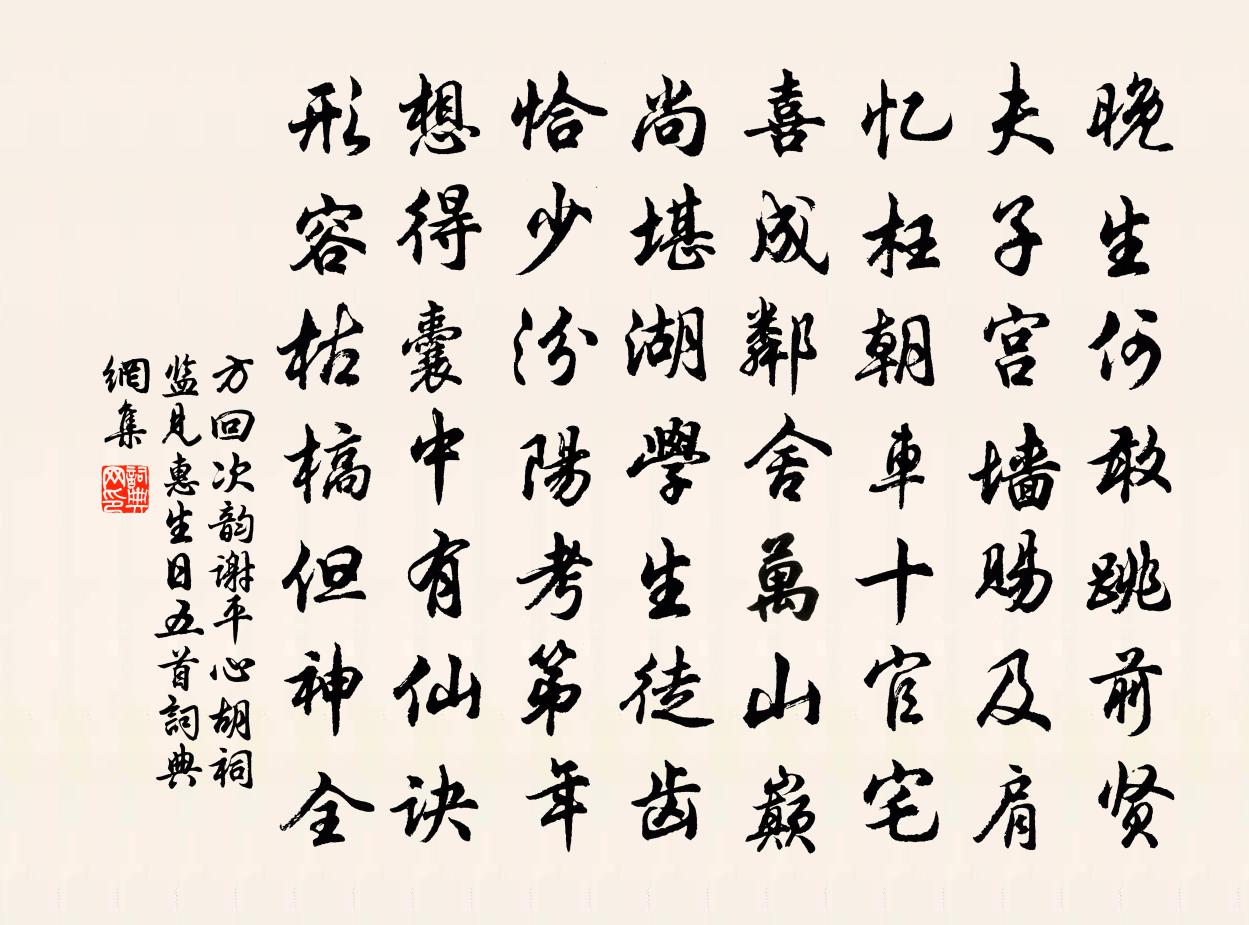 晚生何敢跳前贤
夫子宫墙赐及肩
忆枉朝車十官宅
喜成鄰舍萬山巔
尚堪湖學生徒齿
恰少汾陽考第年
想得囊中有仙诀
形容枯槁但神全
方回次韵谢平心胡祠
监见惠生日五首詞典
網集
詞典
网印